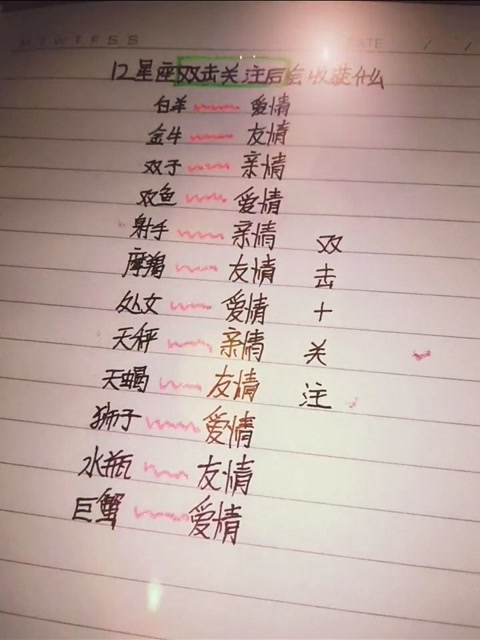 M T W T F S S
DATE / /
12星座双击关注后会收获什么
白羊 爱情
金牛 友情
双子 亲情
双鱼 爱情
射手 亲情
摩羯 友情
处女 爱情
天秤 亲情
天蝎 友情
狮子 爱情
水瓶 友情
巨蟹 爱情
双
击
+
关
注